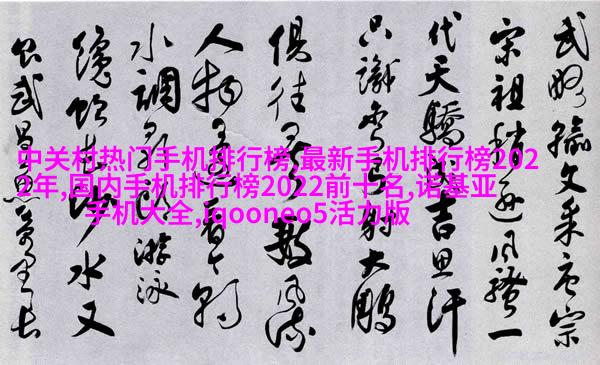 中关村热门手机排行榜,最新手机排行榜202
2年,国内手机排行榜2022前十名,诺基亚
手机大全,iqooneo5活力版
武略输文采唐宗
宋祖稍逊风骚一
代天驕成吉思汗
只識弯弓射大鵰
俱往矣数风流
人物还看今朝
水調歌头游泳
才饮长沙水又
食武昌鱼万里长